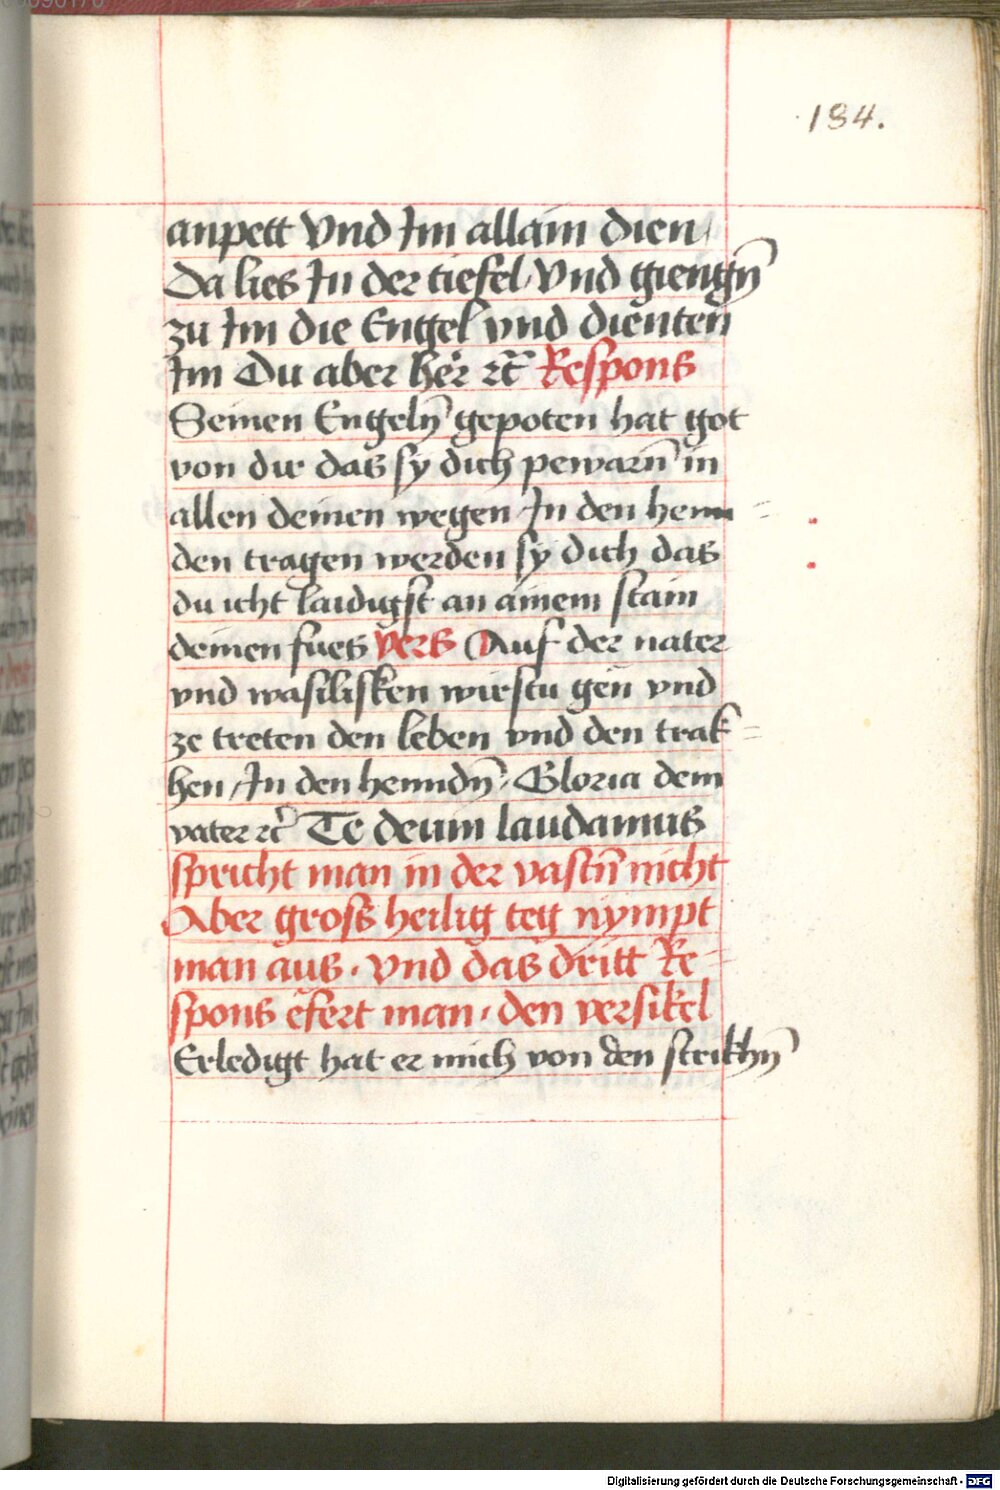 184.
anpett Vnd Im allain dien
Da lies In der tiefel Vnd giengn̄
zu Im die Engel vnd dienten
Im Du aber her ꝛc̄ Respons
Seinen Engeln̄ gepoten hat got
von dir das sy dich pewarn̄ in
allen deinen wegen In den henn
den tragen werden sy dich das
du icht laidigst an ainem stain
deinen fues vers Auf der nater
vnd wasilisken wirstu gen vnd
ze treten den leben vnd den trak
hen / In den henndn̄ · Gloria dem
vater ꝛc̄ Te deum laudamus
spricht man in der vastn̄ nicht
Aber gross heilig teg nympt
man aus · vnd das dritt Re
spons efert man · den versikel
Erledigt hat er mich von den strikhn̄
Digitalisierung gefördert durch die Deutsche Forschungsgemeinschaft - DFG